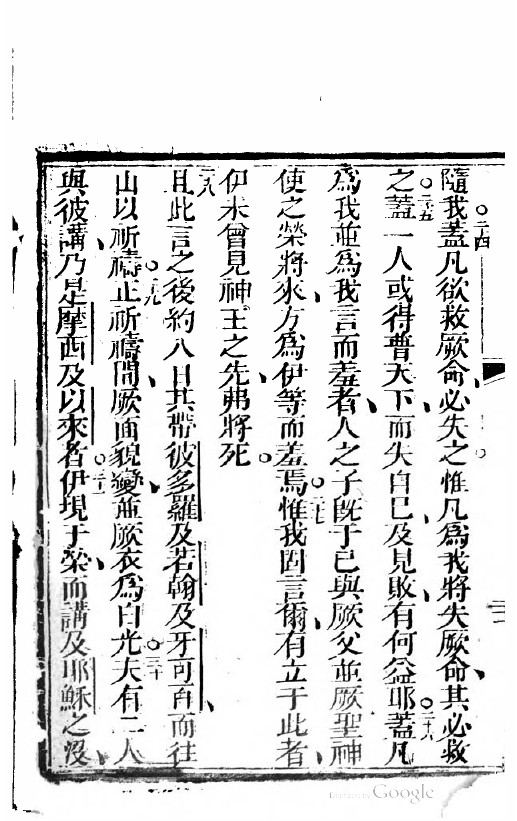 隨我。二四蓋凡欲救厥命、必失之。惟凡為我將失厥命、其必救
之。二五蓋一人或得普天下、而失自己、及見敗、有何益耶。二六蓋凡
為我並為我言而羞者、人之子旣于己與厥父並厥聖神
使之榮將來、方為伊等而羞焉。二七惟我固言爾、有立于此者、
伊未曾見神王之先、弗將死。
二八且此言之後約八日、其帶彼多羅及若翰及牙可百、而往
山以祈禱。二九正祈禱間、厥面貌變、並厥衣為白光。三十夫有二人
與彼講、乃是摩西及以來者。三一伊現于榮、而講及耶穌之沒
Google